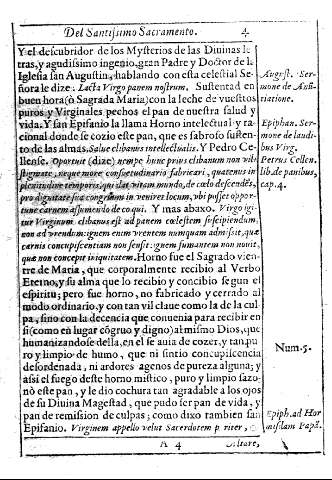 Del Santissimo Sacramento. 4
Y el descubridor de los Mysterios de las Diuinas le
tras, y agudissimo ingenio, gran Padre y Doctor de la
Iglesia san Augustin, hablando con esta celestial Se
ñora le dize: Lacta Virgo panem nostrum. Sustentad en
buen hora (ò Sagrada Maria) con la leche de vuestros
puros y Virginales pechos el pan de nuestra salud y
vida. Y san Epifanio la llama Horno intelectual y ra
cional donde se cozio este pan, que es sabroso susten
to de las almas. Salue clibanus intellectualis. Y Pedro Ce-
llense. Oportuit (dize) nempe hunc prius clibanum non vili
neque more consuetudinario fabricari, quatenus in
plenitudine temporis, qui dat vitam mundo, de cœlo descendēs,
pro dignitate sua congruum in veniret locum, vbi posset oppor-
tune carnem Y mas abaxo. Virgo igi
tur Virginum clibanus est ad panem cœlestem suscipiendum,
non ad vrendum: ignem enim vrentem numquam admisit, quæ
carnis concupiscentiam non sensit: ignem fumantem non nouit,
quæ non concepit in iniquitatem. Horno fue el Sagrado vien-
tre de Maria, que corporalmente recibio al Verbo
Eterno, y su alma que lo recibio y concibio segun el
espiritu; pero fue horno, no fabricado y cerrado al
modo ordinario, y con tan vil claue como la de la cul
pa, sino con la decencia que conuenia para recibir en
si (como en lugar cōgruo y digno) al mismo Dios, que
humanizandose della, en el se auia de cozer, y tan pu
ro y limpio de humo, que ni sintio concupiscencia
desordenada, ni ardores agenos de pureza alguna; y
assi el fuego deste horno mistico, puro y limpio sazo-
nò este pan, y le dio cochura tan agradable a los ojos
de su Diuina Magestad, que pudo ser pan de vida, y
pan de remission de culpas; como dixo tambien san
Epifanio. Virginem appello velut Sacerdotem p. riter,
A 4
August. Ser-
mone de
Epiphan. Ser
mone de laudi
bus Virg.
Petrus Cellen.
lib. de panibus,
cap. 4.
Num. 5.
Epiph. ad Hor
mislam Papã.